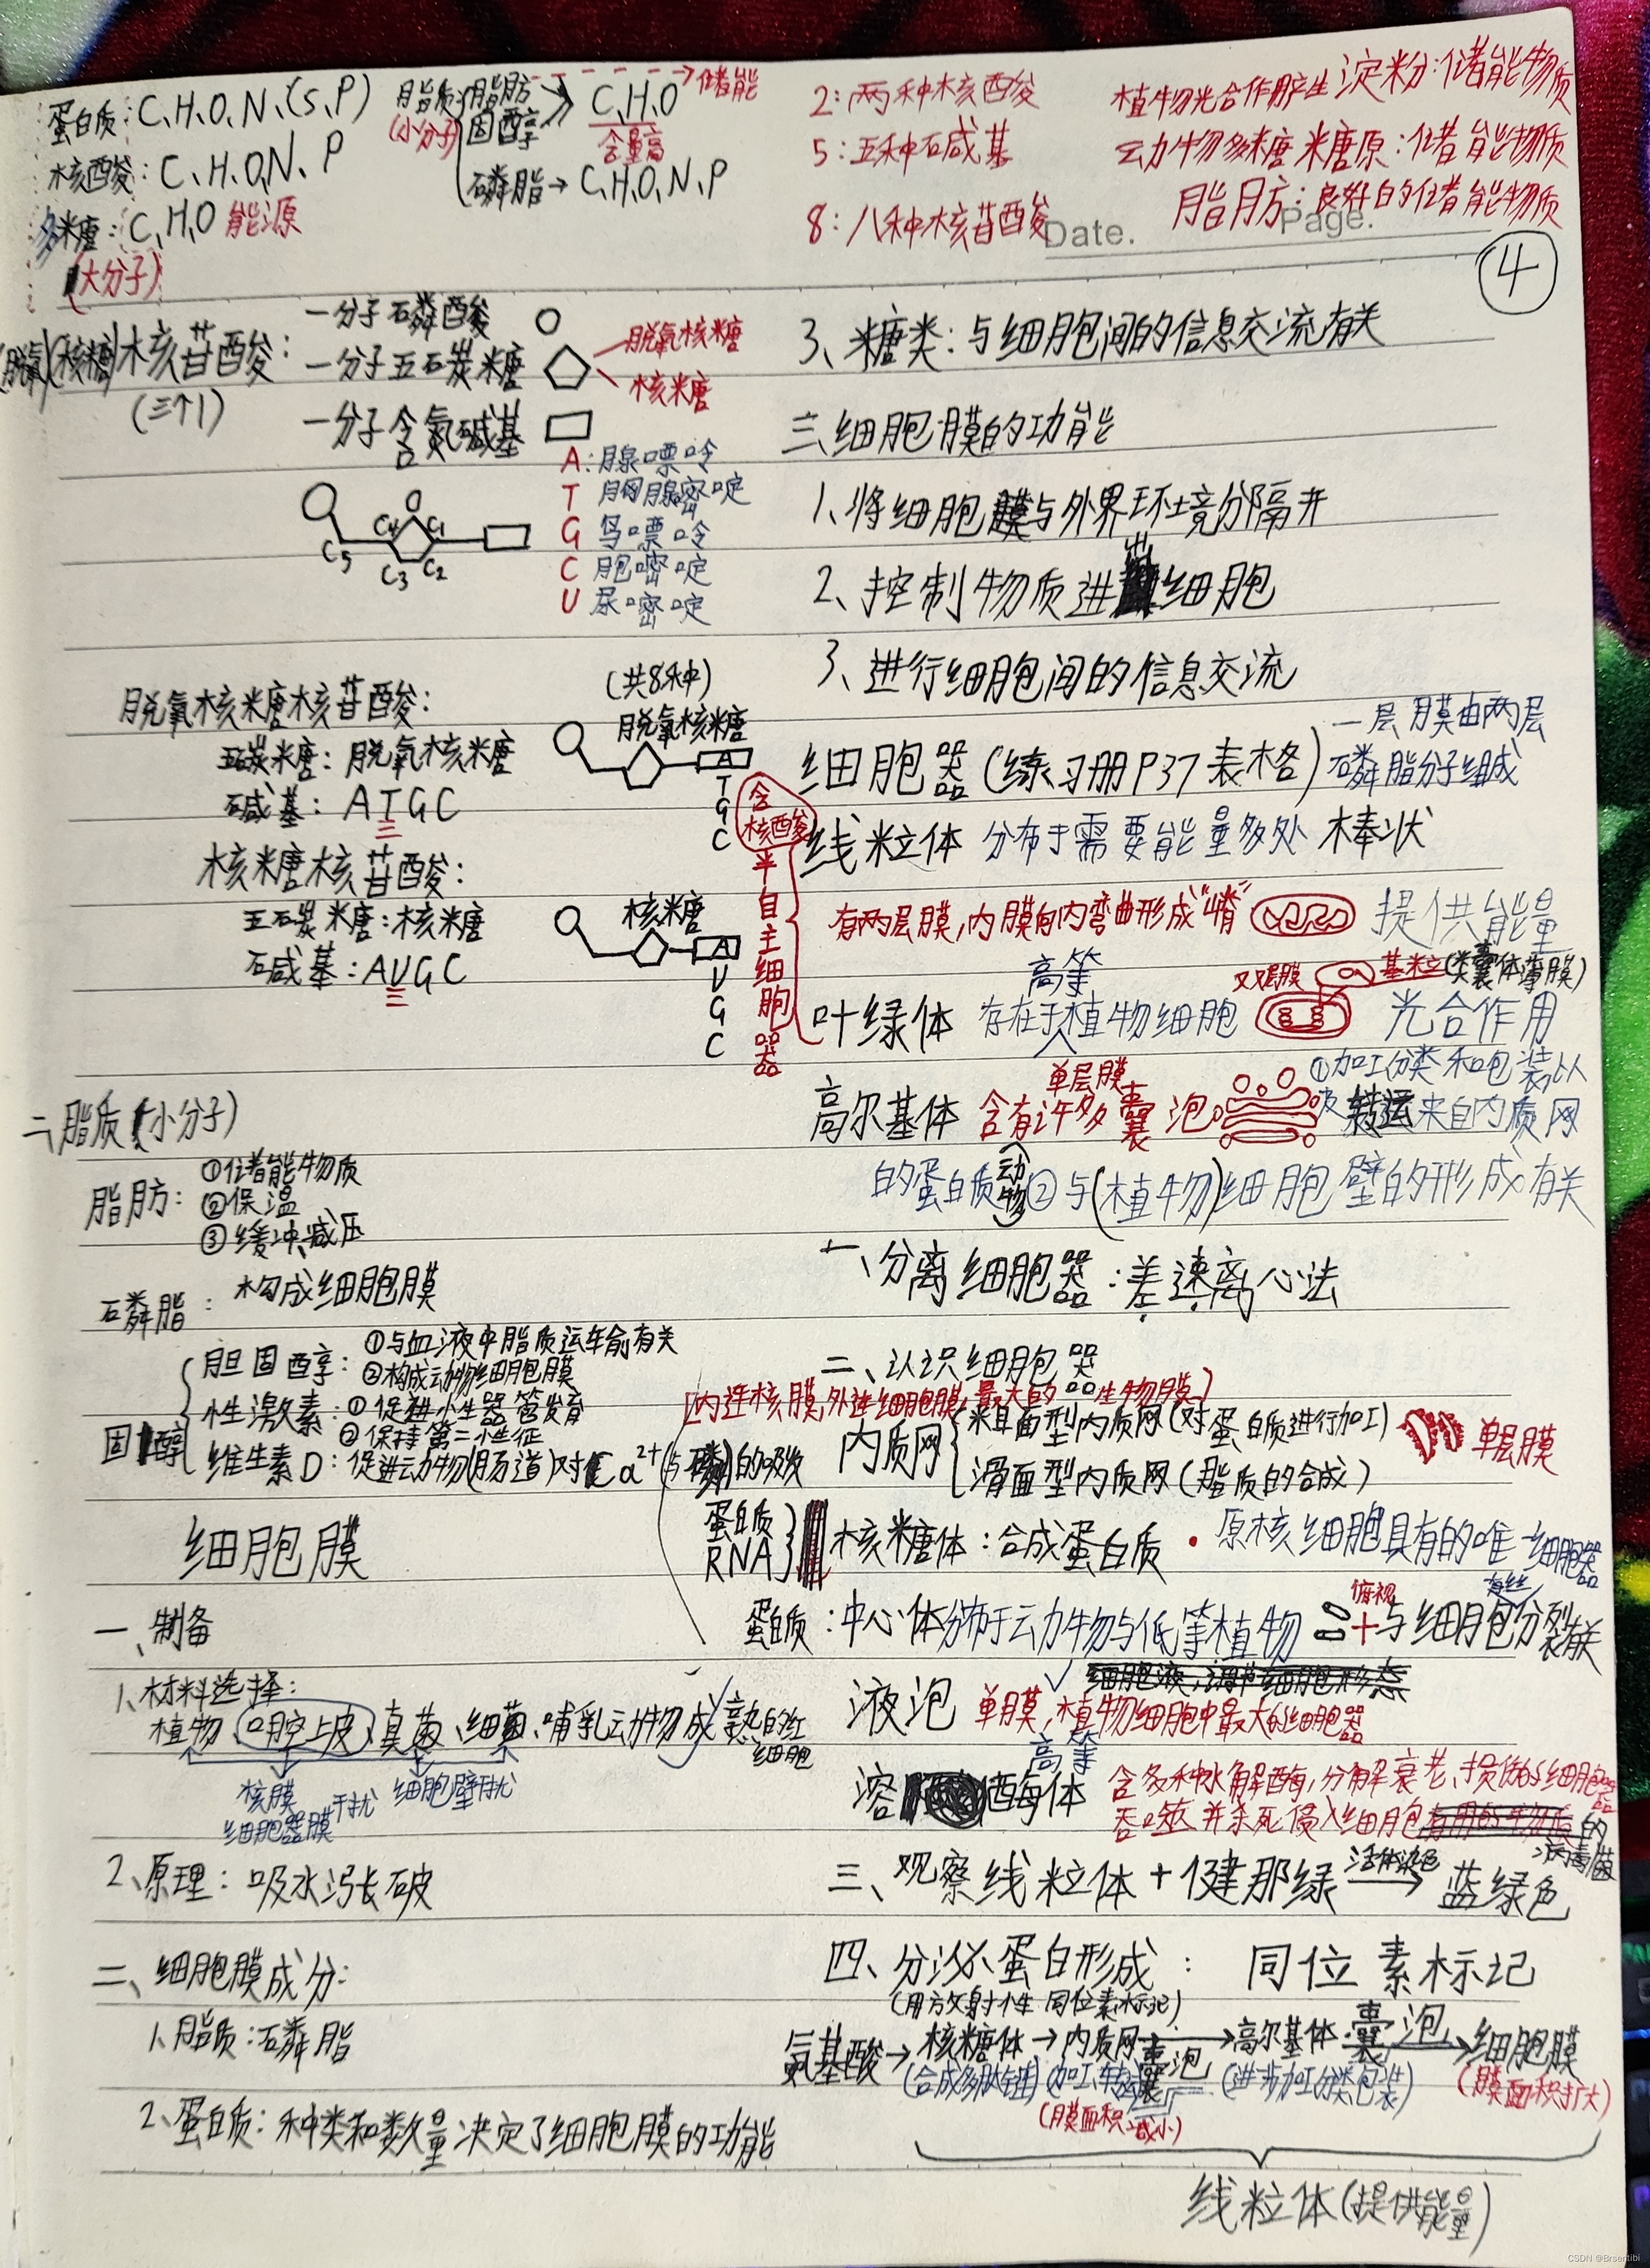 蛋白质:C、H、O、N、(S、P)
核酸:C、H、O、N、P
多糖:C、H、O 能源
(大分子)
脂质(小分子)
脂肪
固醇
C、H、O
储能
含量高
磷脂→C、H、O、N、P
2:两种核酸
5:五种碱基
8:八种核苷酸
植物光合作用产生淀粉:储能物质
动物多糖 糖原:储能物质
脂肪:良好的储能物质
Date.
Page.
4
(脱氧)(核糖)核苷酸:
(三个1)
一分子磷酸
一分子五碳糖
脱氧核糖
核糖
一分子含氮碱基
A:腺嘌呤
T 胸腺嘧啶
G 鸟嘌呤
C 胞嘧啶
U 尿嘧啶
O
C5 C4 C1
C3 C2
(共8种)
脱氧核糖核苷酸:
五碳糖:脱氧核糖
碱基:ATGC
脱氧核糖
A
T
G
C
核糖核苷酸:
五碳糖:核糖
碱基:AUGC
核糖
A
U
G
C
二、脂质(小分子)
脂肪:
①储能物质
②保温
③缓冲、减压
磷脂:构成细胞膜
固醇
胆固醇:①与血液中脂质运输有关
②构成动物细胞膜
性激素:①促进生器管发育
②保持第二性征
维生素D:促进动物(肠道)对Ca2+(与磷)的吸收
细胞膜
一、制备
1、材料选择:
植物、口腔上皮、真菌、细菌、哺乳动物成熟的红细胞
核膜
细胞器膜干扰
细胞壁干扰
2、原理:吸水涨破
二、细胞膜成分:
1、脂质:磷脂
2、蛋白质:种类和数量决定了细胞膜的功能
3、糖类:与细胞间的信息交流有关
三、细胞膜的功能
1、将细胞膜与外界环境分隔开
2、控制物质进出细胞
3、进行细胞间的信息交流
细胞器(练习册P37表格)
一层膜由两层
磷脂分子组成
含核酸
半自主细胞器
线粒体 分布于需要能量多处 棒状
有两层膜,内膜向内弯曲形成"嵴" 提供能量
叶绿体 存在于高等植物细胞 双层膜 基粒(类囊体薄膜) 光合作用
高尔基体 单层膜 含有许多囊泡 ①加工分类和包装以
及转运来自内质网
的蛋白质(动物)②与(植物)细胞壁的形成有关
一、分离细胞器:差速离心法
二、认识细胞器
[内连核膜,外连细胞膜,最大的生物膜]
内质网
粗面型内质网(对蛋白质进行加工)
滑面型内质网(脂质的合成)
单层膜
蛋白质
RNA
核糖体:合成蛋白质·原核细胞具有的唯一细胞器
蛋白质:中心体分布于动物与低等植物 俯视 与细胞有丝分裂有关
细胞液,调节细胞形态
液泡 单膜,植物细胞中最大的细胞器
高等
溶酶体 含多种水解酶,分解衰老、损伤的细胞器
吞噬并杀死侵入细胞的病毒菌
三、观察线粒体+健那绿 活体染色→ 蓝绿色
四、分泌蛋白形成:同位素标记
(用放射性同位素标记)
氨基酸→核糖体→内质网→囊泡→高尔基体 囊泡→细胞膜
(合成多肽链)
(进一步加工分类包装)
(膜面积减小)
(膜面积扩大)
线粒体(提供能量)
CSDN @Brsentibi